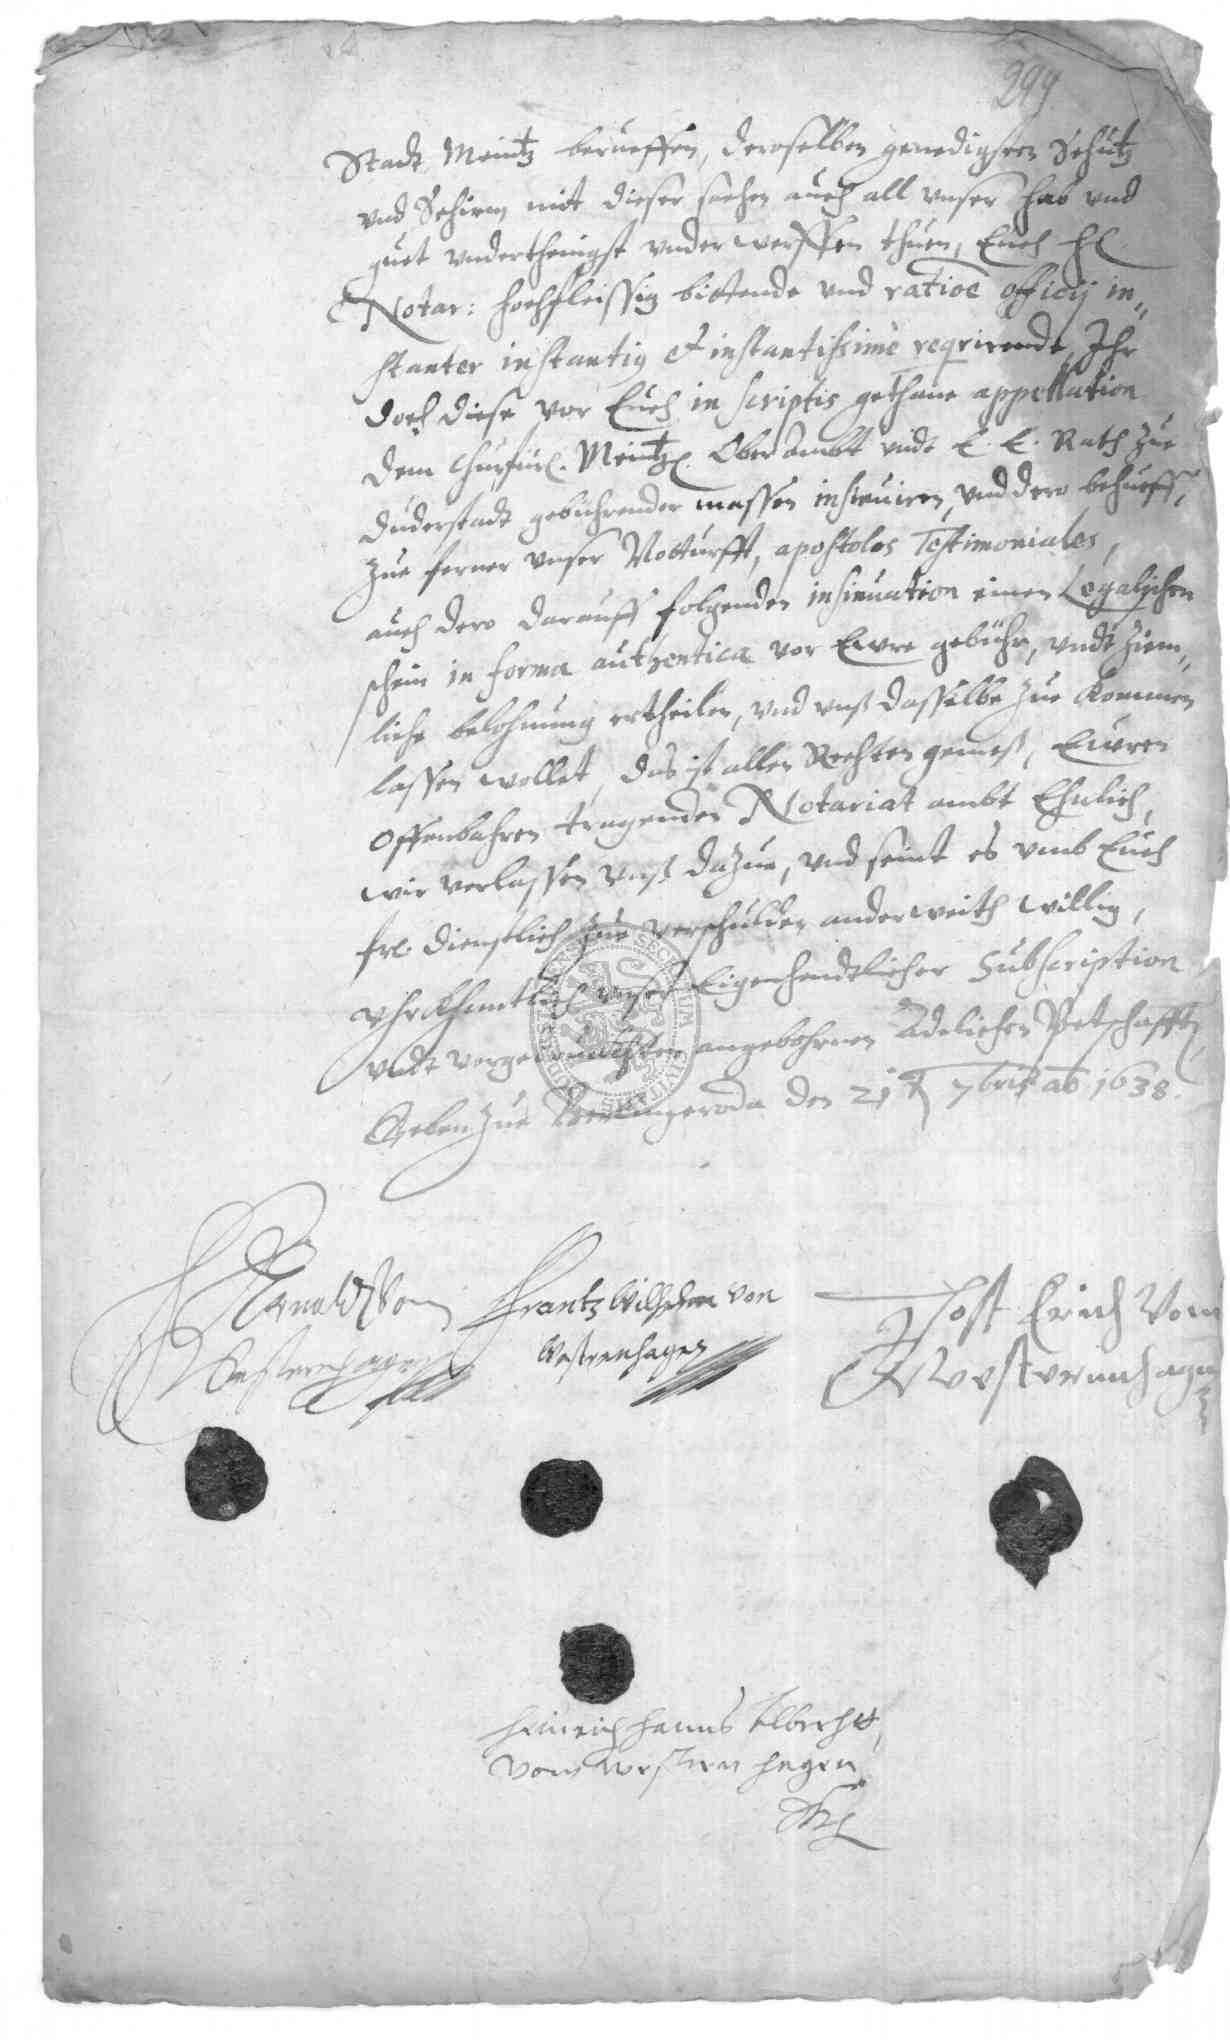 299
Stadt Meintz berueffen, deroselben genedigsten Schutz
und Schirm mit dieser sachen auch all unser hab und
guet underthenigst underwerffen thuen, Euch H.
Notar: hochfleissig bittende und ratioe officij in„
stanter instantig et instantissimè reqrirende, Ihr
doch diese vor Euch in scriptis gethane appellation
dem Churfürl. Meintz. Ober Ambt undt E. E. Rath zue
Duderstadt gebührender massen insinuiren, und dero behueff,
zue ferner unser Notturfft, apostolos Testimoniales,
auch dero darauff folgenden insinuation einen Legalischen
schein in forma authentica vor Ewre gebühr, undt ziem„
liche belohnung ertheilen, und unß dasselbe zue kommen
lassen wollet, das ist allen Rechten gemeß, Ewren
offenbahren tragenden Notariat ambt Ehrlich,
wir verlassen unß dazue, und seint es umb Euch
frl. dienstlich zue verschulden anderweith willig,
Uhrkhundtlich unser Eigenhendtlicher Subscription
undt vorgedruckten angebohrnen Adelichen Petschafften,
Geben zue den 21 7bris ao 1638.
Arnoldt Von
Westernhagen
Frantz Wilhelm von
Westrenhagen
Jost Erich Vom
Westerennhagen
Heinrich Hanns Albrecht,
vom western hagen
SECRETUM CIVITATIS